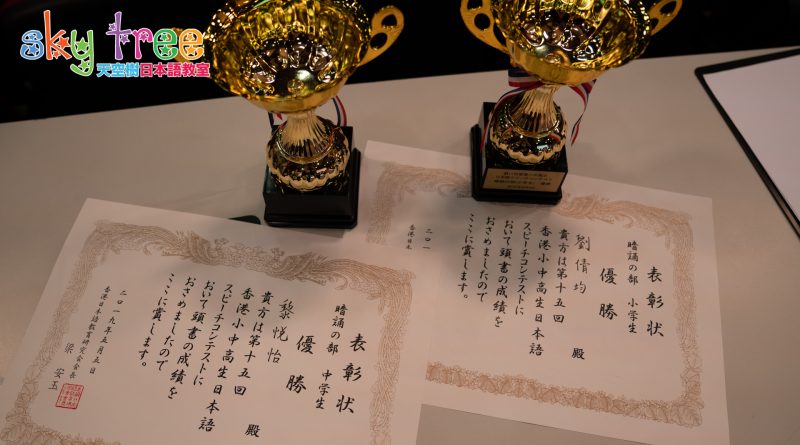 sky tree
天空樹日本語教室
表彰状
暗誦の部 中学生
優勝
黎悦怡 殿
貴方は第十五回
香港小中高生日本語
スピーチコンテストに
おいて頭書の成績を
おさめましたので
ここに賞します。
二〇一九年五月五日
香港日本語教育研究会会長
梁安玉
表彰状
暗誦の部 小学生
優勝
劉倩均 殿
貴方は第十五回
香港小中高生日本語
スピーチコンテストに
おいて頭書の成績を
おさめましたので
ここに賞します。
二〇一
香港日本